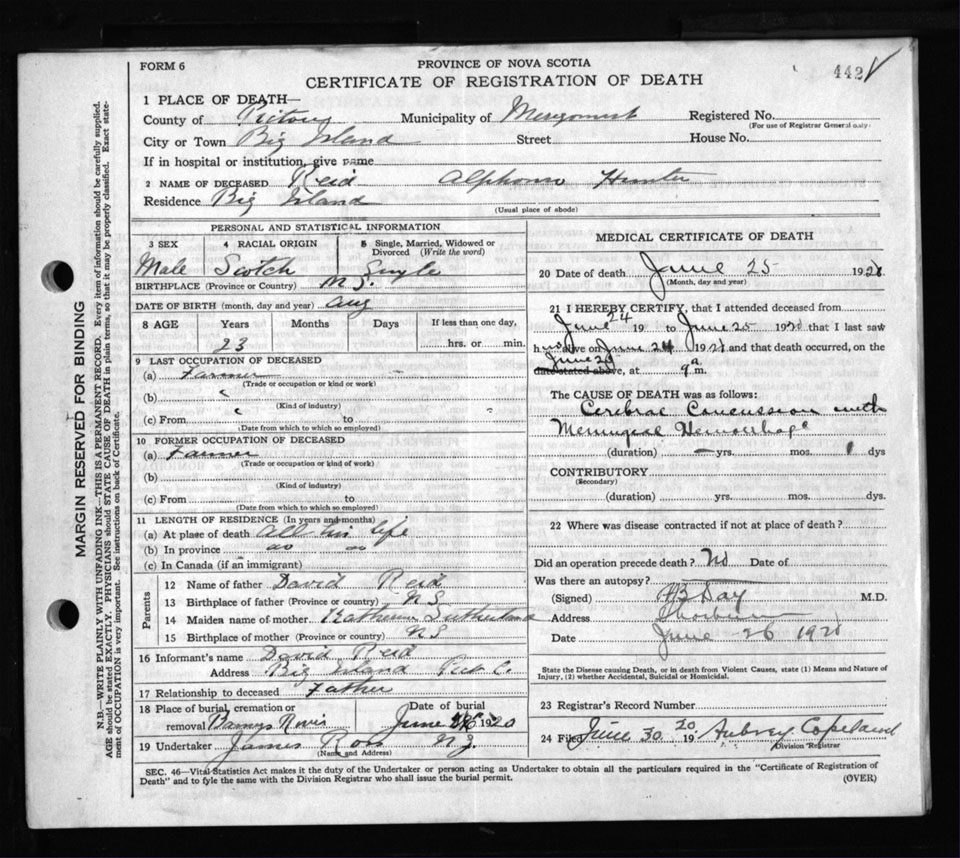 FORM 6
PROVINCE OF NOVA SCOTIA
CERTIFICATE OF REGISTRATION OF DEATH
442
1 PLACE OF DEATH—
County of Pictou Municipality of Merigomish Registered No.
(For use of Registrar General only)
City or Town Big Island Street House No.
If in hospital or institution, give name
2 NAME OF DECEASED Reid Alphonso Hunter
Residence Big Island
(Usual place of abode)
PERSONAL AND STATISTICAL INFORMATION
3 SEX 4 RACIAL ORIGIN 5 Single, Married, Widowed or Divorced (Write the word)
Male Scotch Single
BIRTHPLACE (Province or Country) N.S.
DATE OF BIRTH (month, day and year) Aug
8 AGE Years Months Days If less than one day,
23 hrs. or min.
9 LAST OCCUPATION OF DECEASED
(a) Farmer
(Trade or occupation or kind or work)
(b) "
(Kind of industry)
(c) From " to
(Date from which to which so employed)
10 FORMER OCCUPATION OF DECEASED
(a) Farmer
(Trade or occupation or kind of work)
(b)
(Kind of industry)
(c) From to
(Date from which to which so employed)
11 LENGTH OF RESIDENCE (In years and months)
(a) At place of death All his life
(b) In province do do
(c) In Canada (if an immigrant)
Parents
12 Name of father David Reid
13 Birthplace of father (Province or country) N S
14 Maiden name of mother Katherine Sutherland
15 Birthplace of mother (Province or country) N S
16 Informant's name David Reid
Address Big Island Pict C.
17 Relationship to deceased Father
18 Place of burial, cremation or removal Barneys River
Date of burial June 1920
19 Undertaker James Ross N.G.
(Name and Address)
MEDICAL CERTIFICATE OF DEATH
20 Date of death June 25 192
(Month, day and year)
21 I HEREBY CERTIFY, that I attended deceased from
June 24 19 to June 25 1920 that I last saw
h alive on June 24 192 and that death occurred, on the
June 25
date stated above, at 9 a m.
The CAUSE OF DEATH was as follows:
Cerebral Concussion with
Meningeal Hemorrhage
(duration) – yrs. mos. 1 dys
CONTRIBUTORY
(Secondary)
(duration) yrs. mos. dys.
22 Where was disease contracted if not at place of death?
Did an operation precede death? No Date of
Was there an autopsy?
(Signed) Day M.D.
Address Thorburn
Date June 26 192
State the Disease causing Death, or in death from Violent Causes, state (1) Means and Nature of
Injury, (2) whether Accidental, Suicidal or Homicidal.
23 Registrar's Record Number
24 Filed June 30 1920 Aubrey Copeland
Division Registrar
SEC. 46—Vital Statistics Act makes it the duty of the Undertaker or person acting as Undertaker to obtain all the particulars required in the "Certificate of Registration of
Death" and to fyle the same with the Division Registrar who shall issue the burial permit.
(OVER)
MARGIN RESERVED FOR BINDING
N.B.—WRITE PLAINLY WITH UNFADING INK—THIS IS A PERMANENT RECORD. Every item of information should be carefully supplied.
AGE should be stated EXACTLY. PHYSICIANS should STATE CAUSE OF DEATH in plain terms, so that it may be properly classified. Exact state-
ment of OCCUPATION is very important. See instructions on back of Certificate.